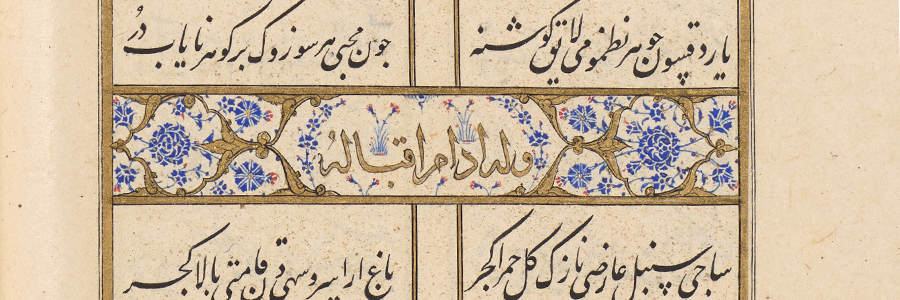 یار دقسون جوهر نظمومی لایق کوشنه جون محبی هر سوزوک بر کوهر نایاب دُر
وله ادام اقباله
ساجی سنبل عارضی نازک کل حمرا کجر باغ ارا سرو سهی دن قامتی بالا کجر